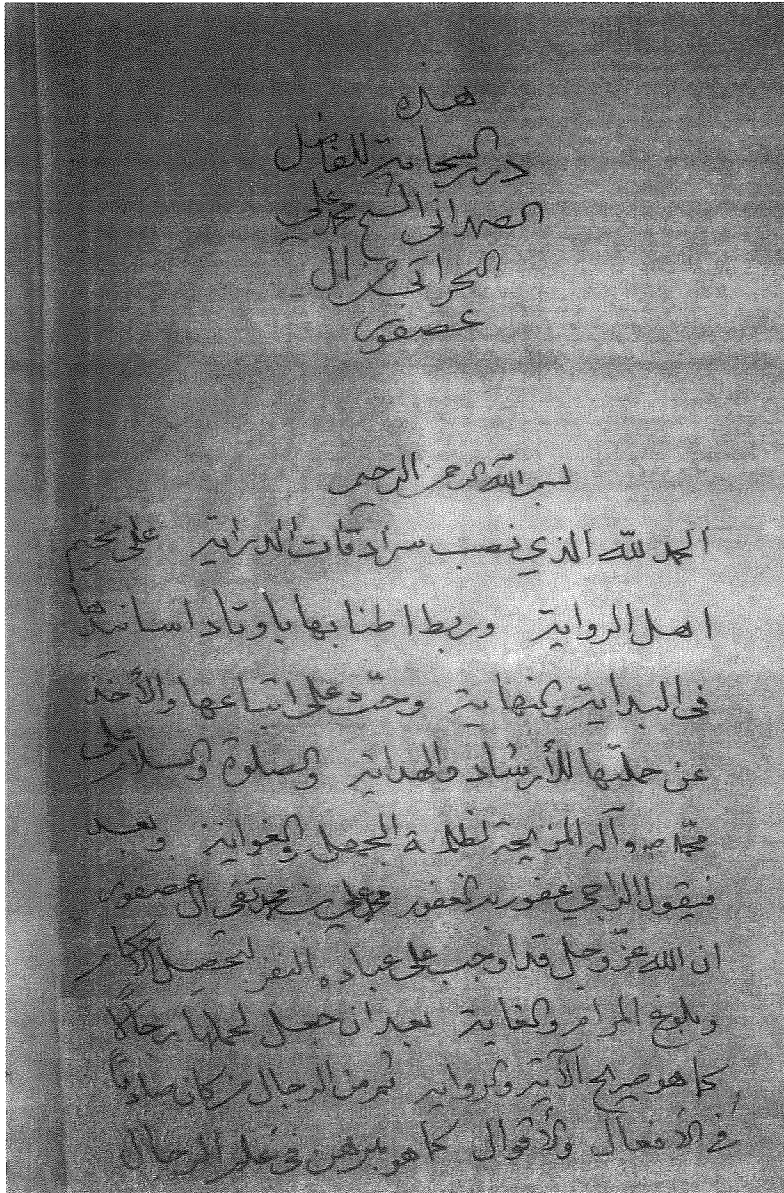 هذه
درر السحابة للفاضل
الصمداني الشيخ محمد علي
البحراني من آل
عصفور
بسم الله الرحمن الرحيم
الحمد لله الذي نصب سرادقات الدراية على مخيم
اهل الرواية وربط اطنابها باوتاد اسانيدها
في البداية والنهاية وحثّ على اتباعها والأخذ
عن حملتها للأرشاد والهداية والصلوة والسلام على
محمّد ص وآله المزيحة لظلمة الجهل والغواية وبعد
فيقول الراجي عفو ربه الغفور محمد علي بن محمد تقي آل عصفور
ان الله عزّ وجل قد اوجب على عباده النفر لتحصيل الأحكام
وبلوغ المرام والغاية بعد ان جعل لحملها رجالاً
كما هو صريح الآية والرواية ثم من الرجال من كان صادقاً
في الأفعال والأقوال كما هو مبرهن في علم الرجال